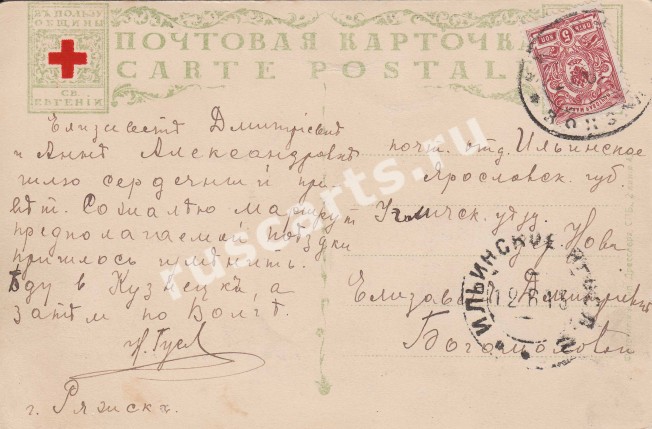 ВЪ ПОЛЬЗУ
ОБЩИНЫ
СВ.
ЕВГЕНІИ
ПОЧТОВАЯ КАРТОЧКА
CARTE POSTALE
Елизаветѣ Дмитріевнѣ
и Аннѣ Александровнѣ
шлю сердечный при-
вѣт. Сожалѣю маршрут
предполагаемой поѣздки
пришлось измѣнить.
Ѣду в Кузнецкъ, а
затѣм по Волгѣ.
г. Ряжскъ.
почт. отд. Ильинское
Ярославск. губ.
Угличск. уѣзд.
Елизавѣтѣ Дмитріевнѣ
Богомоловой
5 КОП
ВОКЗАЛ
ИЛЬИНСКОЕ
ruscerts.ru